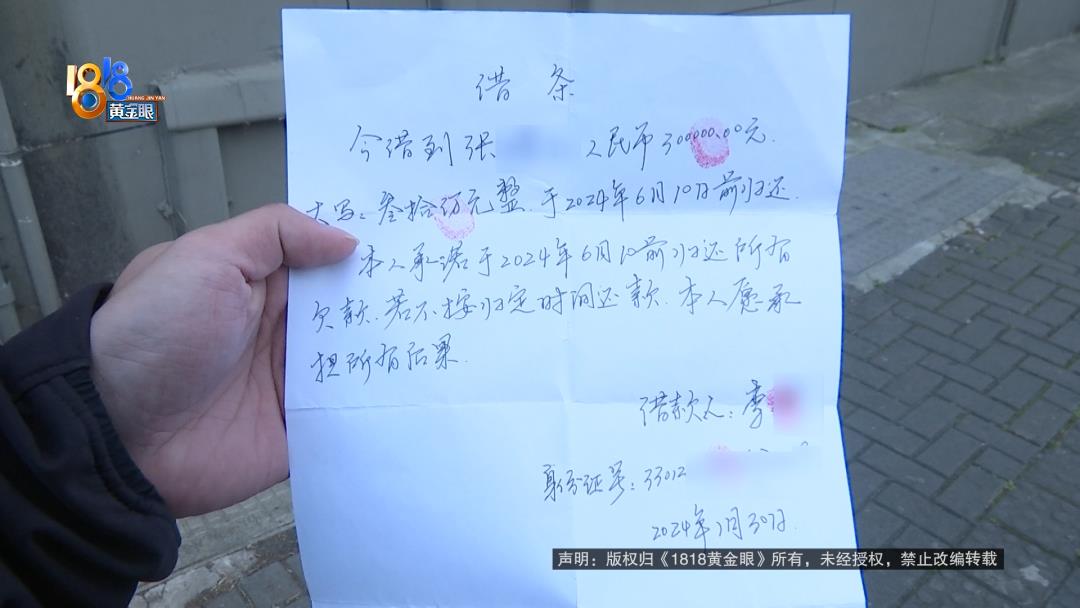 1818
HUANG JIN YAN
黄金眼
借条
今借到张 人民币300000.00元.
大写:叁拾万元整.于2024年6月10日前归还.
本人承诺于2024年6月10前归还所有
欠款.若不按归定时间还款.本人愿承
担所有后果.
借款人:李
身份证号:33012
2024年1月30日.
声明:版权归《1818黄金眼》所有,未经授权,禁止改编转载